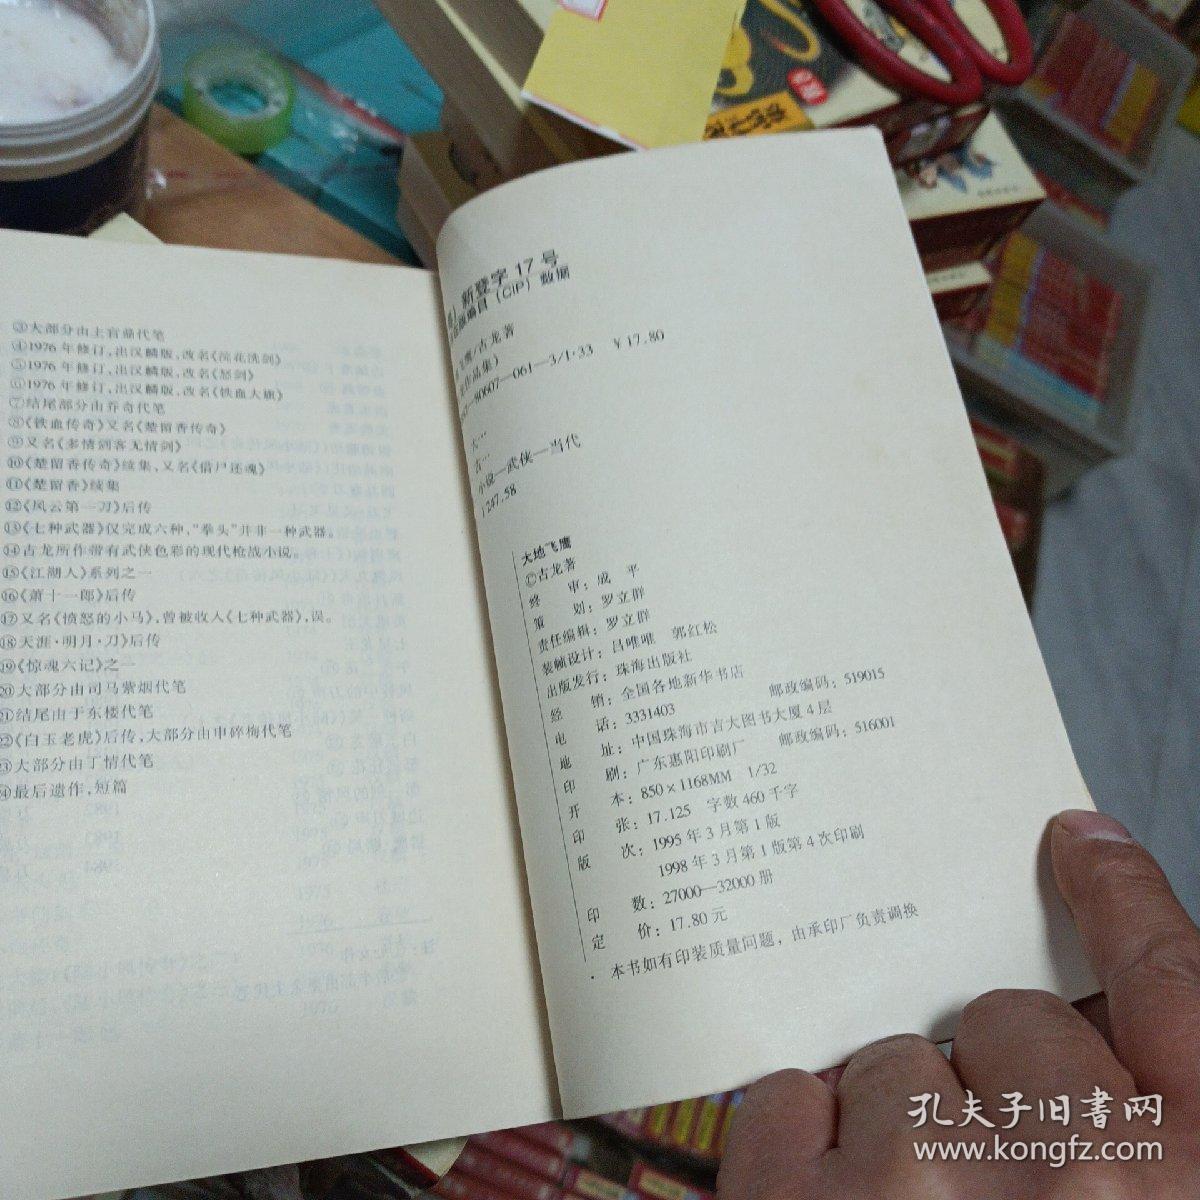 ③大部分由上官鼎代笔
④1976年修订,出汉麟版,改名《浣花洗剑》
⑤1976年修订,出汉麟版,改名《怒剑》
⑥1976年修订,出汉麟版,改名《铁血大旗》
⑦结尾部分由乔奇代笔
⑧《铁血传奇》又名《楚留香传奇》
⑨又名《多情剑客无情剑》
⑩《楚留香传奇》续集,又名《借尸还魂》
⑪《楚留香》续集
⑫《风云第一刀》后传
⑬《七种武器》仅完成六种,“拳头”并非一种武器。
⑭古龙所作带有武侠色彩的现代枪战小说。
⑮《江湖人》系列之一
⑯《萧十一郎》后传
⑰又名《愤怒的小马》,曾被收入《七种武器》,误。
⑱天涯·明月·刀》后传
⑲《惊魂六记》之一
⑳大部分由司马紫烟代笔
㉑结尾由于东楼代笔
㉒《白玉老虎》后传,大部分由申碎梅代笔
㉓大部分由丁情代笔
㉔最后遗作,短篇
新登字17号
编目(CIP)数据
飞鹰/古龙著
作品集)
80607—061—3/I·33 ￥17.80
大…
古…
小说—武侠—当代
I247.58
大地飞鹰
©古龙著
终 审:成 平
策 划:罗立群
责任编辑:罗立群
装帧设计:吕唯唯 郭红松
出版发行:珠海出版社
经 销:全国各地新华书店
电 话:3331403 邮政编码:519015
地 址:中国珠海市吉大图书大厦4层
印 刷:广东惠阳印刷厂 邮政编码:516001
开 本:850×1168MM 1/32
印 张:17.125 字数460千字
版 次:1995年3月第1版
1998年3月第1版第4次印刷
印 数:27000—32000册
定 价:17.80元
·本书如有印装质量问题,由承印厂负责调换
孔夫子旧书网
www.kongfz.com